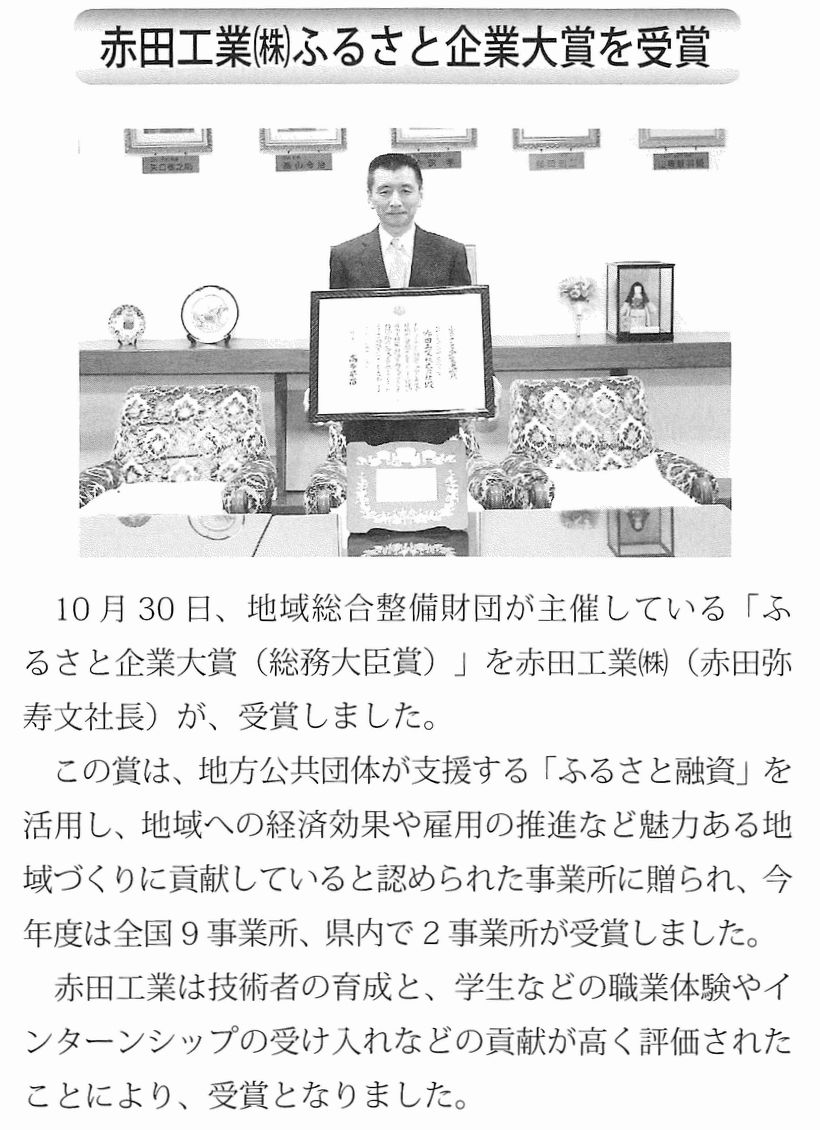 赤田工業㈱ふるさと企業大賞を受賞
10月30日、地域総合整備財団が主催している「ふ
るさと企業大賞（総務大臣賞）」を赤田工業㈱（赤田弥
寿文社長）が、受賞しました。
この賞は、地方公共団体が支援する「ふるさと融資」を
活用し、地域への経済効果や雇用の推進など魅力ある地
域づくりに貢献していると認められた事業所に贈られ、今
年度は全国9事業所、県内で2事業所が受賞しました。
赤田工業は技術者の育成と、学生などの職業体験やイ
ンターンシップの受け入れなどの貢献が高く評価された
ことにより、受賞となりました。